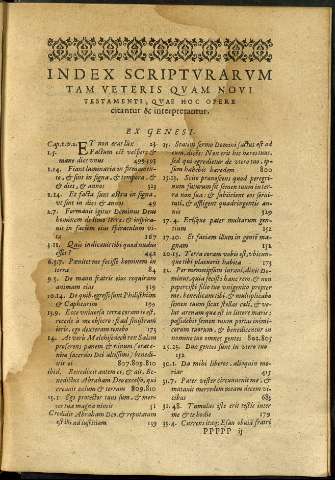 INDEX SCRIPTVRARVM
TAM VETERIS QVAM NOVI
TESTAMENTI, QVAE HOC OPERE
citantur & interpretantur.
EX GENESI.
Cap.1. v.2. ET non erat lux 23
1.5. Factum est vespere &
mane dies vnus 499.503
1.14. Fiant luminaria in firmamen-
to, & sint in signa, & tempora, &
& dies, & annos 323
1.16. Et facta sunt astra in signa,
vt sint in dies & annos 49
2.7. Formavit igitur Dominus Deus
hominem de limo terræ: & inspira-
vit in faciem eius spiraculum vi-
tæ 167
3.11. Quis indicauit tibi quod nudus
esses? 442
6.6.7. Pœnitet me fecisse hominem in
terra 84
9.5. De manu fratris eius requiram
animam eius 519
10.14. De quib. egressi sunt Philisthiim
& Capthorim 190
13.9. Ecce vniuersa terra coram te est,
recede à me obsecro: si ad sinistram
ieris, ego dexteram tenebo 175
14. At verò Melchisedech rex Salem
proferens panem & vinum (erat e-
nim sacerdos Dei altissimi) benedi-
xit ei 807.809.810
ibid. Benedixit autem ei, & ait, Be-
nedictus Abraham Deo excelso, qui
creauit cœlum & terram 809.810
15.1. Ego protector tuus sum, & mer-
ces tua magna nimis 51
Credidit Abraham Deo, & reputatum
est illi ad iustitiam 139
15. Statim sermo Domini factus est ad
eum, dicens: Non erit hic heres tuus,
sed qui egredietur de vtero tuo, ip-
sum habebis hæredem 800
15.13. Scito prænoscens quod peregri-
num futurum sit semen tuum in ter-
ra non sua: & subijcient eos seruitu-
ti, & affligent quadringentis an-
nis 519
17.4. Erisque pater multarum gen-
tium 152
17.20. Et faciam illum in gentē ma-
gnam 152
20.15. Terra coram vobis est, vbicun-
que tibi placuerit habita 175
22. Per memetipsum iuraui, dicit Do-
minus, quia fecisti hanc rem, & non
pepercisti filio tuo vnigenito propter
me, benedicam tibi, & multiplicabo
semen tuum sicut stellas cœli, & ve-
lut arenam quæ est in littore maris;
possidebit semen tuum portas inimi-
corum tuorum, & benedicentur in
nomine tuo omnes gentes 802.805
25.23. Duæ gentes sunt in vtero tuo
152
30.1. Da mihi liberos, alioquin mo-
riar 415
31.7. Pater vester circumuenit me, &
mutauit mercedem meam decem vi-
cibus 685
31.48. Tumulus iste erit testis inter
me & te hodie 179
35.4. Currens itaq; Esau obuiā fratri
PPPPP ij